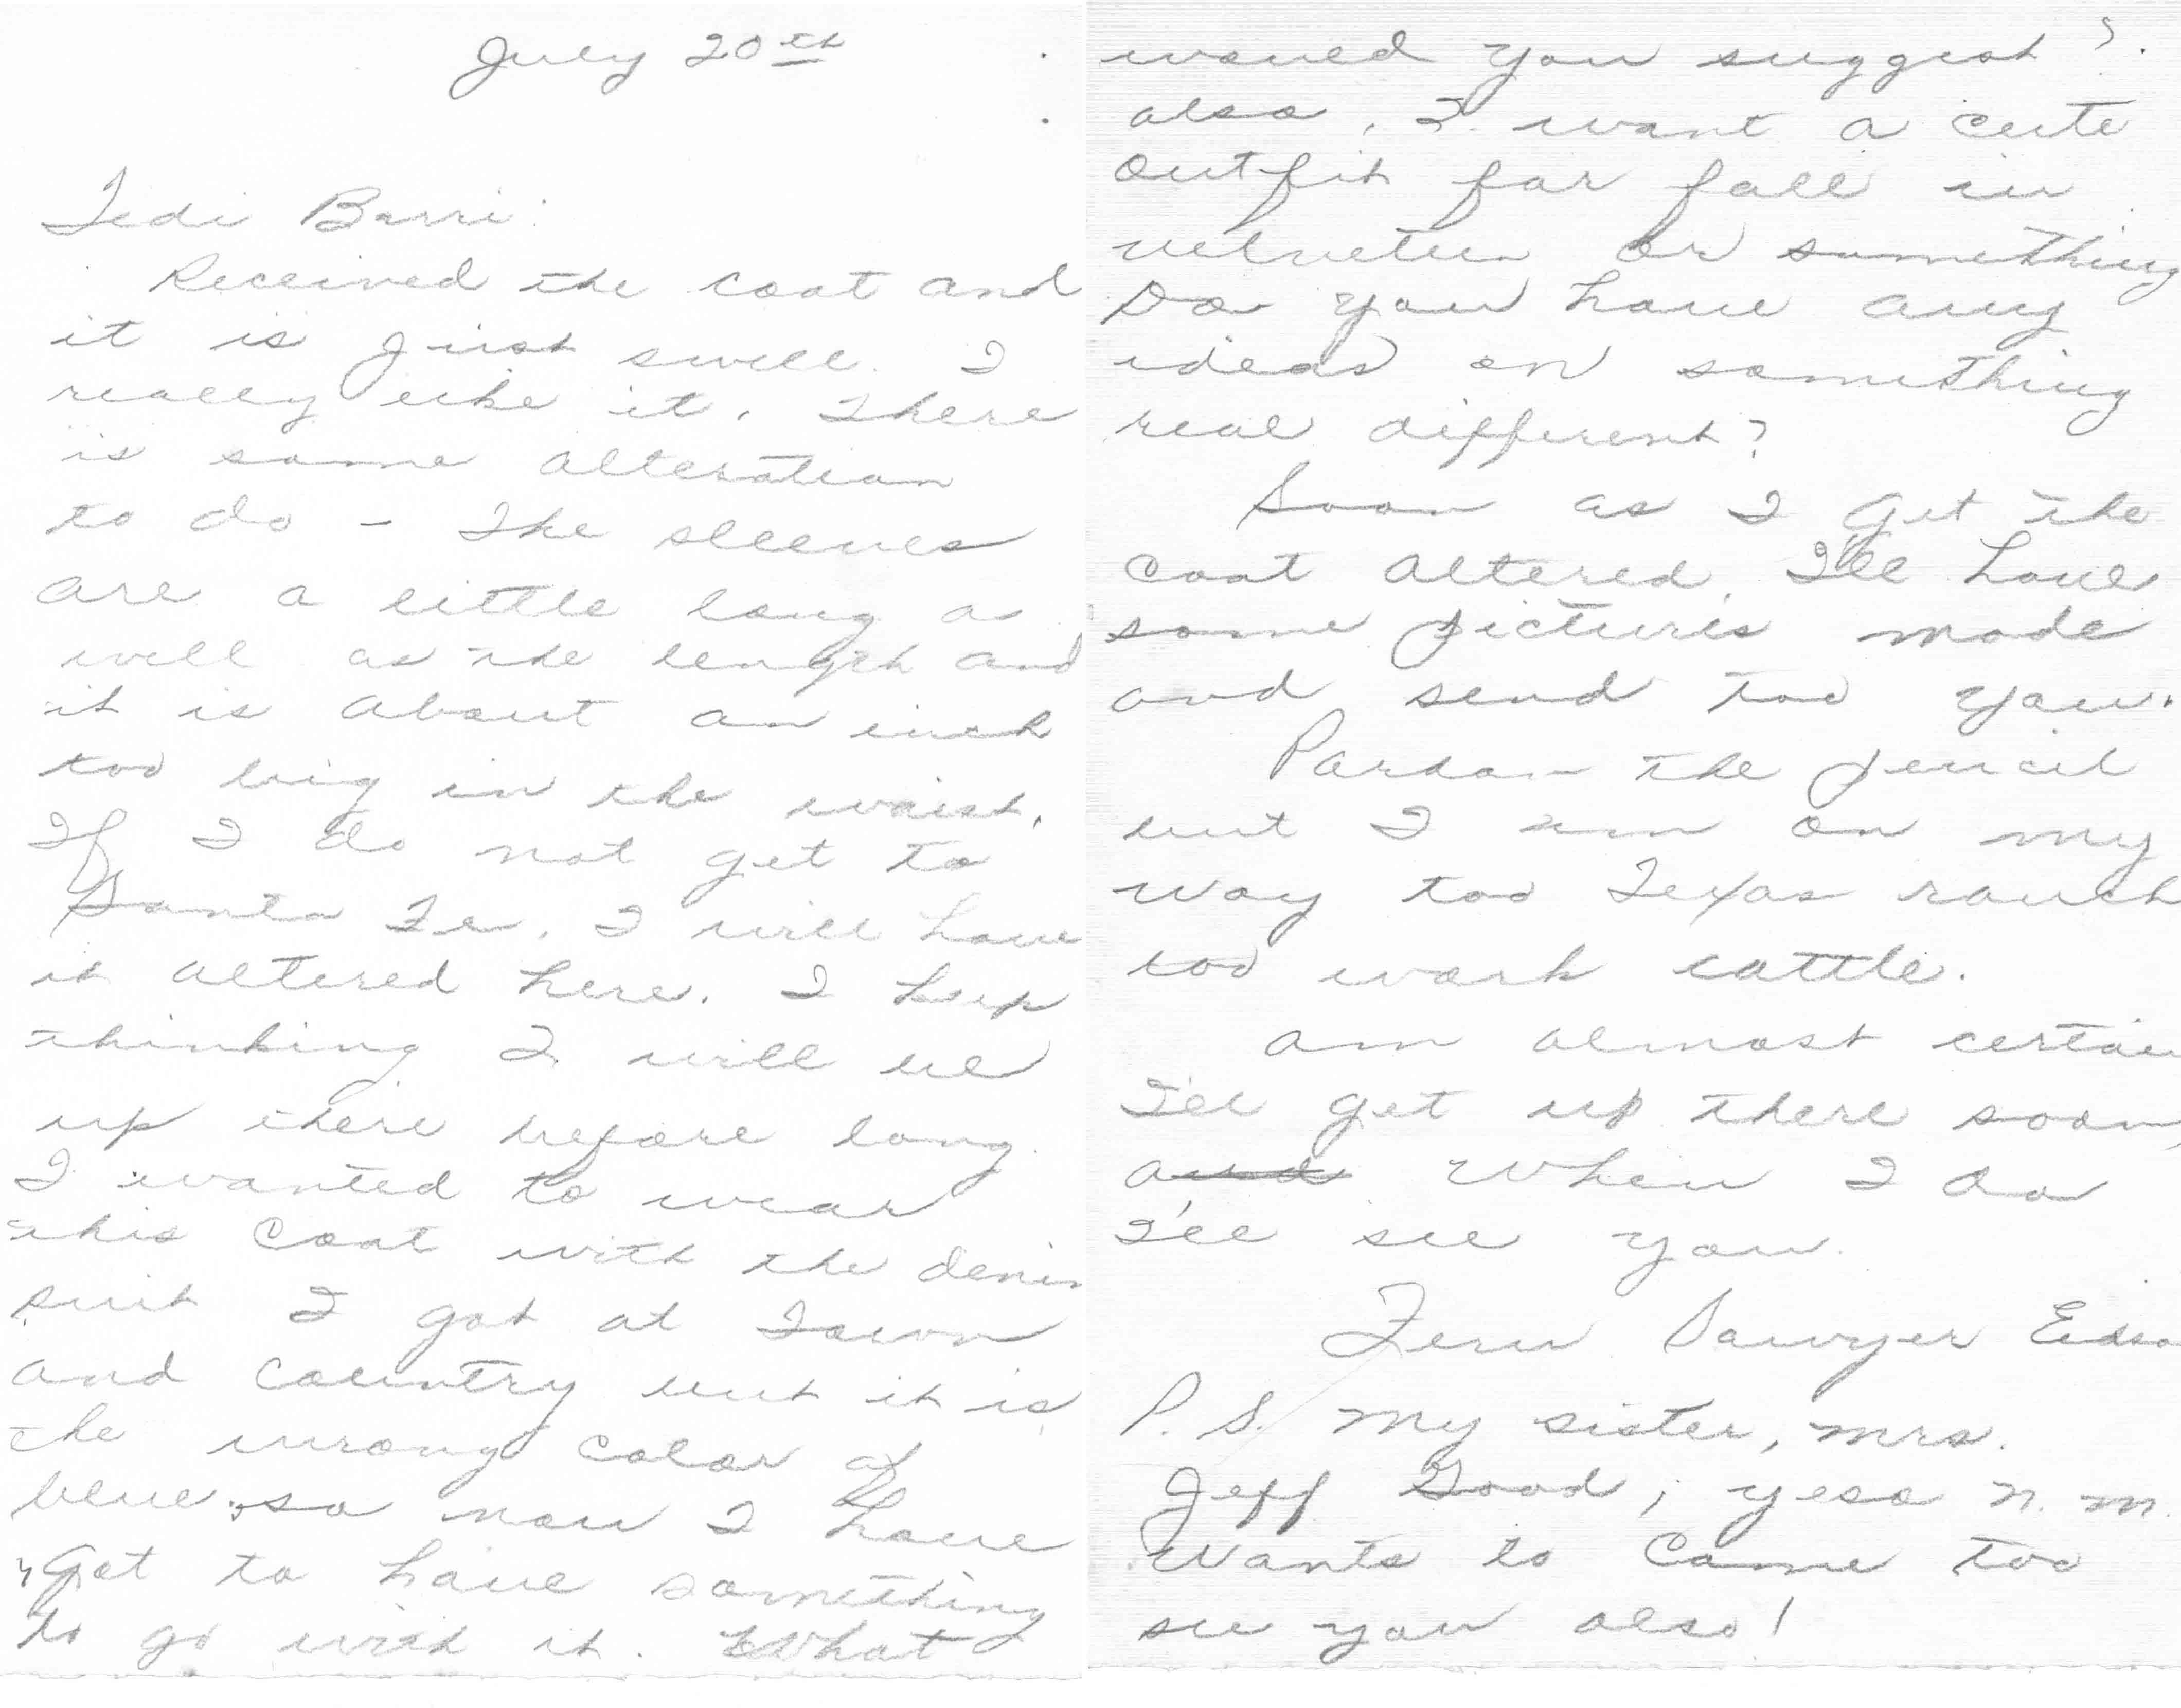 July 20th
Tedi Barri:
Received the coat and
it is just swell. I
really like it. There
is some alteration
to do - The sleeves
are a little long a
well as the length and
it is about an inch
too big in the waist.
If I do not get to
Santa Fe, I will have
it altered here. I keep
thinking I will be
up there before long.
I wanted to wear
this coat with the denim
suit I got at Town
and Country but it is
the wrong color of
blue, so now I have
got to have something
to go with it. What
would you suggest?
also, I want a cute
outfit for fall in
velveteen or something
Do you have any
ideas on something
real different?
Soon as I get the
coat altered, I'll have
some pictures made
and send too you.
Pardon the pencil
but I am on my
way too Texas ranch
too work cattle.
am almost certain
I'll get up there soon,
and when I do
I'll see you.
Fern Sawyer
P.S. my sister, mrs.
Jeff Good, yeso n. m.
wants to come too
see you also!